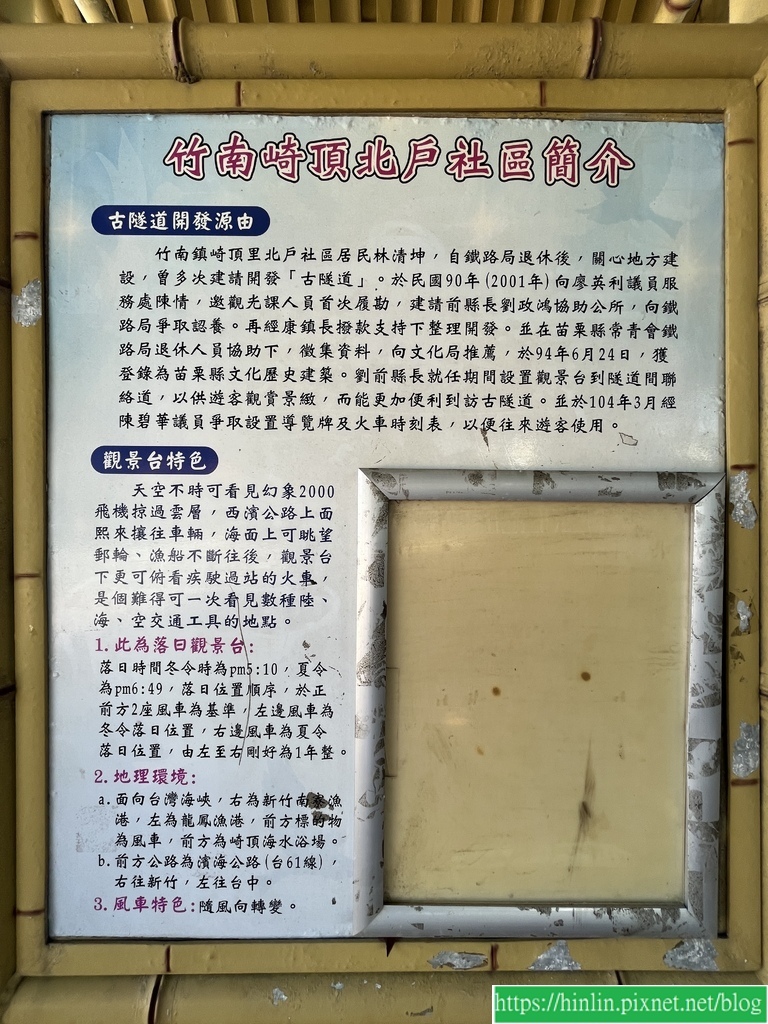 竹南崎頂北戶社區簡介
古隧道開發源由
竹南鎮崎頂里北戶社區居民林清坤，自鐵路局退休後，關心地方建
設，曾多次建請開發「古隧道」。於民國90年(2001年)向廖英利議員服
務處陳情，邀觀光課人員首次履勘，建請前縣長劉政鴻協助公所，向鐵
路局爭取認養。再經康鎮長撥款支持下整理開發。並在苗栗縣常青會鐵
路局退休人員協助下，徵集資料，向文化局推薦，於94年6月24日，獲
登錄為苗栗縣文化歷史建築。劉前縣長就任期間設置觀景台到隧道間聯
絡道，以供遊客觀賞景緻，而能更加便利到訪古隧道。並於104年3月經
陳碧華議員爭取設置導覽牌及火車時刻表，以便往來遊客使用。
觀景台特色
天空不時可看見幻象2000
飛機掠過雲層，西濱公路上面
熙來攘往車輛，海面上可眺望
郵輪、漁船不斷往後，觀景台
下更可俯看疾駛過站的火車，
是個難得可一次看見數種陸、
海、空交通工具的地點。
1.此為落日觀景台：
落日時間冬令時為pm5:10，夏令
為pm6:49，落日位置順序，於正
前方2座風車為基準，左邊風車為
冬令落日位置，右邊風車為夏令
落日位置，由左至右剛好為1年整。
2.地理環境：
a.面向台灣海峽，右為新竹南寮漁
港，左為龍鳳漁港，前方標的物
為風車，前方為崎頂海水浴場。
b.前方公路為濱海公路(台61線)，
右往新竹，左往台中。
3.風車特色：隨風向轉變。
https://hinlin.pixnet.net/blog